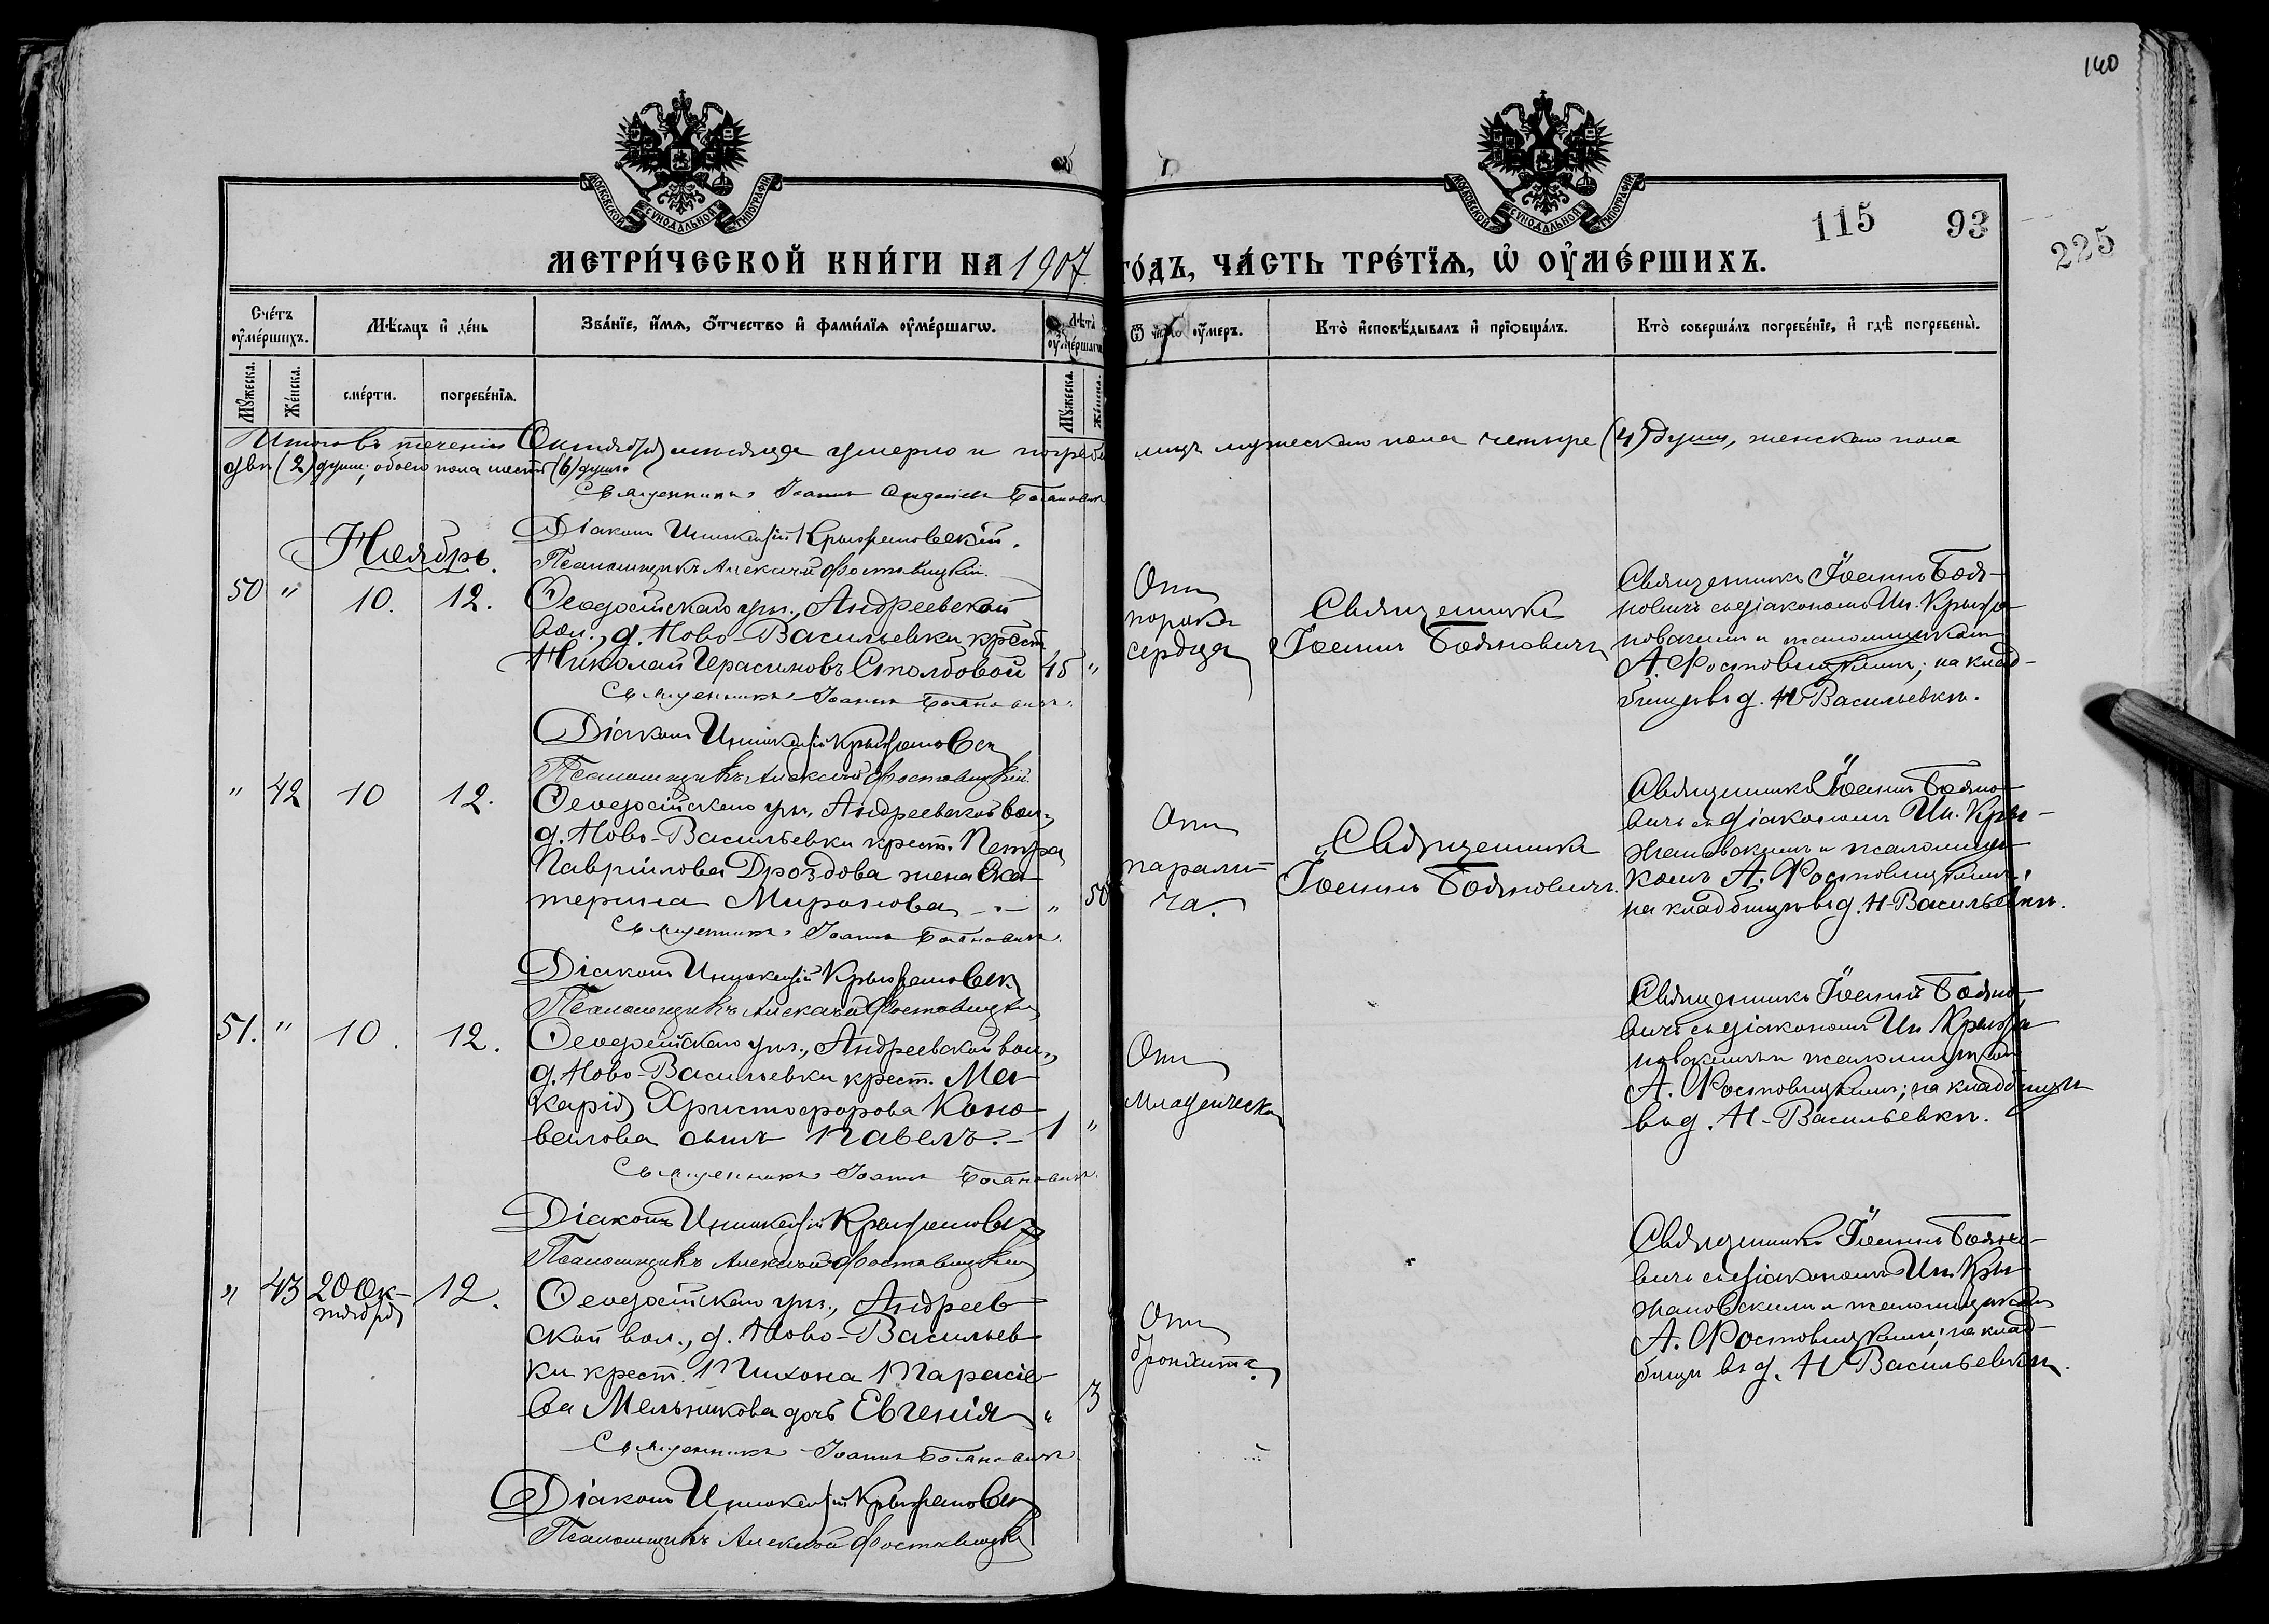 140
МОСКОВСКОЙ СѴНОДАЛЬНОЙ ТИПОГРАФІИ
МОСКОВСКОЙ СѴНОДАЛЬНОЙ ТИПОГРАФІИ
115 93
225
МЕТРИ́ЧЕСКОЙ КНИ́ГИ НА 1907 го́дъ, ЧА́СТЬ ТРЕ́ТЇѦ, Ѡ҆ ОУ҆МЕ́РШИХЪ.
Сче́тъ оу҆ме́ршихъ.
Мѣ́сяцъ и҆ де́нь
Зва́нїе, и҆́мѧ, ѻ҆́тчество и҆ фами́лїѧ оу҆ме́ршагѡ.
Лѣ́та оу҆ме́ршагѡ
Ѿ чегѡ̀ оу҆́меръ.
Кто̀ и҆сповѣ́дывалъ и҆ прїѡбща́лъ.
Кто̀ соверша́лъ погребе́нїе, и҆ гдѣ̀ погребены̀.
Мꙋ́жеска.
Же́нска.
сме́рти.
погребе́нїѧ.
Мꙋ́жеска.
Же́нска.
Итого въ теченіи Октября мѣсяца умерло и погреб лицъ мужескаго пола четыре (4) души, женскаго пола
двѣ (2) души; обоего пола шесть (6) душъ.
Священникъ Іоаннъ Бояновичъ
Діаконъ Иннокентій Крыжановскій.
Псаломщикъ Алексѣй Фостовицкій.
Ноябрь.
50 " 10. 12.
Ѳеодосійскаго уѣз., Андреевской
вол., д. Ново-Васильевки крест.
Николай Герасимовъ Столбовой 45 "
Отъ
порока
сердца
Священникъ
Іоаннъ Бояновичъ
Священникъ Іоаннъ Боя-
новичъ съ діакономъ Ин. Крыжа-
новскимъ и псаломщикомъ
А. Фостовицкимъ; на клад-
бищѣ въ д. Н-Васильевкѣ.
Священникъ Іоаннъ Бояновичъ.
Діаконъ Иннокентій Крыжановск
Псаломщикъ Алексѣй Фостовицкій.
" 42 10 12.
Ѳеодосійскаго уѣз., Андреевской вол.,
д. Ново-Васильевки крест. Петра
Гавріилова Дроздова жена Ека-
терина Миронова " 50
Отъ
парали-
ча.
Священникъ
Іоаннъ Бояновичъ.
Священникъ Іоаннъ Бояно-
вичъ съ діакономъ Ин. Кры-
жановскимъ и псаломщи-
комъ А. Фостовицкимъ;
на кладбищѣ въ д. Н-Васильевкѣ.
Священникъ Іоаннъ Бояновичъ.
Діаконъ Иннокентій Крыжановск
Псаломщикъ Алексѣй Фостовицкі
51. " 10. 12.
Ѳеодосійскаго уѣз., Андреевской вол.,
д. Ново-Васильевки крест. Ма-
карія Христофорова Коно-
валова сынъ Павелъ. 1 "
Отъ
младенческ
Священникъ Іоаннъ Бояно-
вичъ съ діакономъ Ин Крыжа-
новскимъ и псаломщикомъ
А. Фостовицкимъ; на кладбищѣ
въ д. Н-Васильевкѣ.
Священникъ Іоаннъ Бояновичъ.
Діаконъ Иннокентій Крыжановск
Псаломщикъ Алексѣй Фостовицкій
" 43 20 Ок-
тября 12.
Ѳеодосійскаго уѣз., Андреев-
ской вол., д. Ново-Васильев-
ки крест. Тихона Тарасіе-
ва Мельникова дочь Евгенія " 3
Отъ
бронхита
Священникъ Іоаннъ Бояно-
вичъ съ діакономъ Ин. Кры-
жановскимъ и псаломщикомъ
А. Фостовицкимъ; на клад-
бищѣ въ д. Н Васильевкѣ.
Священникъ Іоаннъ Бояновичъ
Діаконъ Иннокентій Крыжановск
Псаломщикъ Алексѣй Фостовицкі